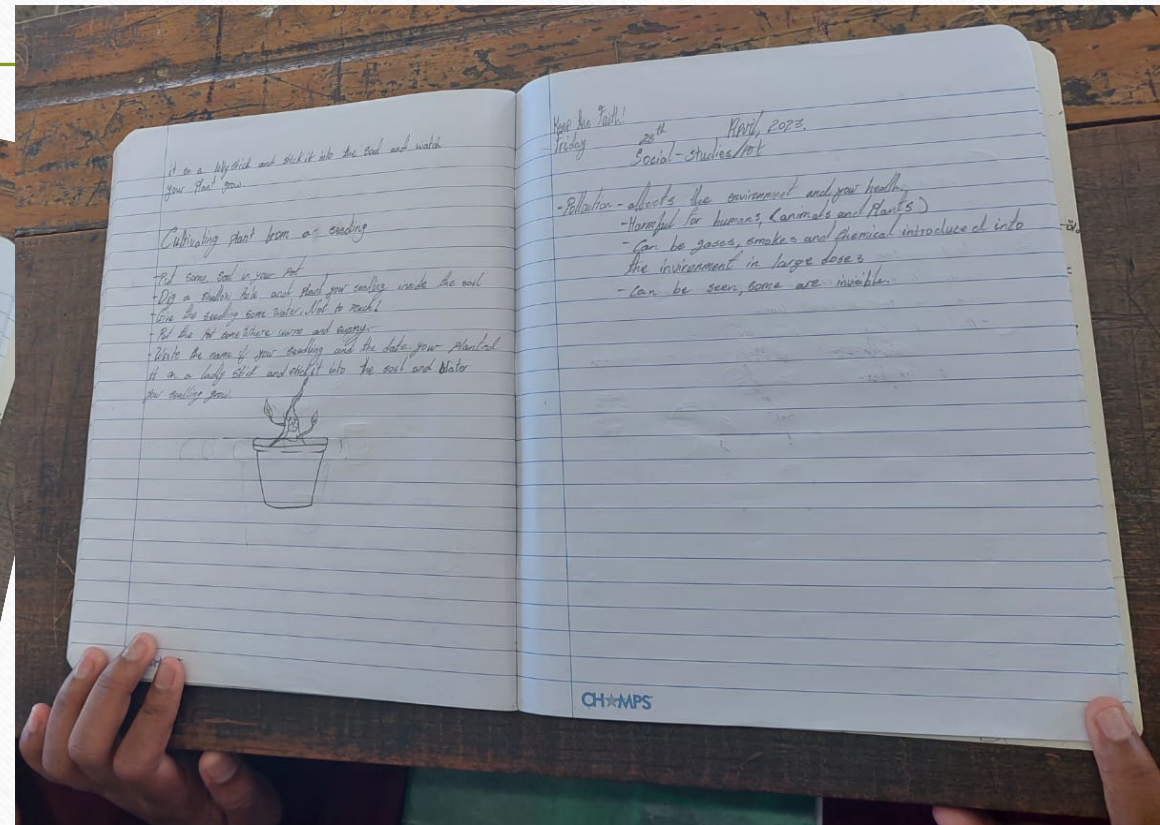 it on a lolly stick and stick it into the soil and watch
your Plant grow.
Cultivating plant from a seeding
- Put some soil in your Pot
- Dig a shallow hole and Plant your seeding inside the soil
- Give the seedling some water. Not to much!
- Put the Pot some where warm and sunny.
- Write the name of your seedling and the date your Planted
it on a stick and stick it into the soil and Water
your seedling grow.
Keep the Faith!
Friday 28th April, 2023.
Social-studies/
- Pollution - affects the environment and your health.
- Harmful for humans, (animals and Plants)
- Can be gases, smokes and chemical introduced into
the invironment in large doses
- Can be seen, some are invisible.
CHAMPS